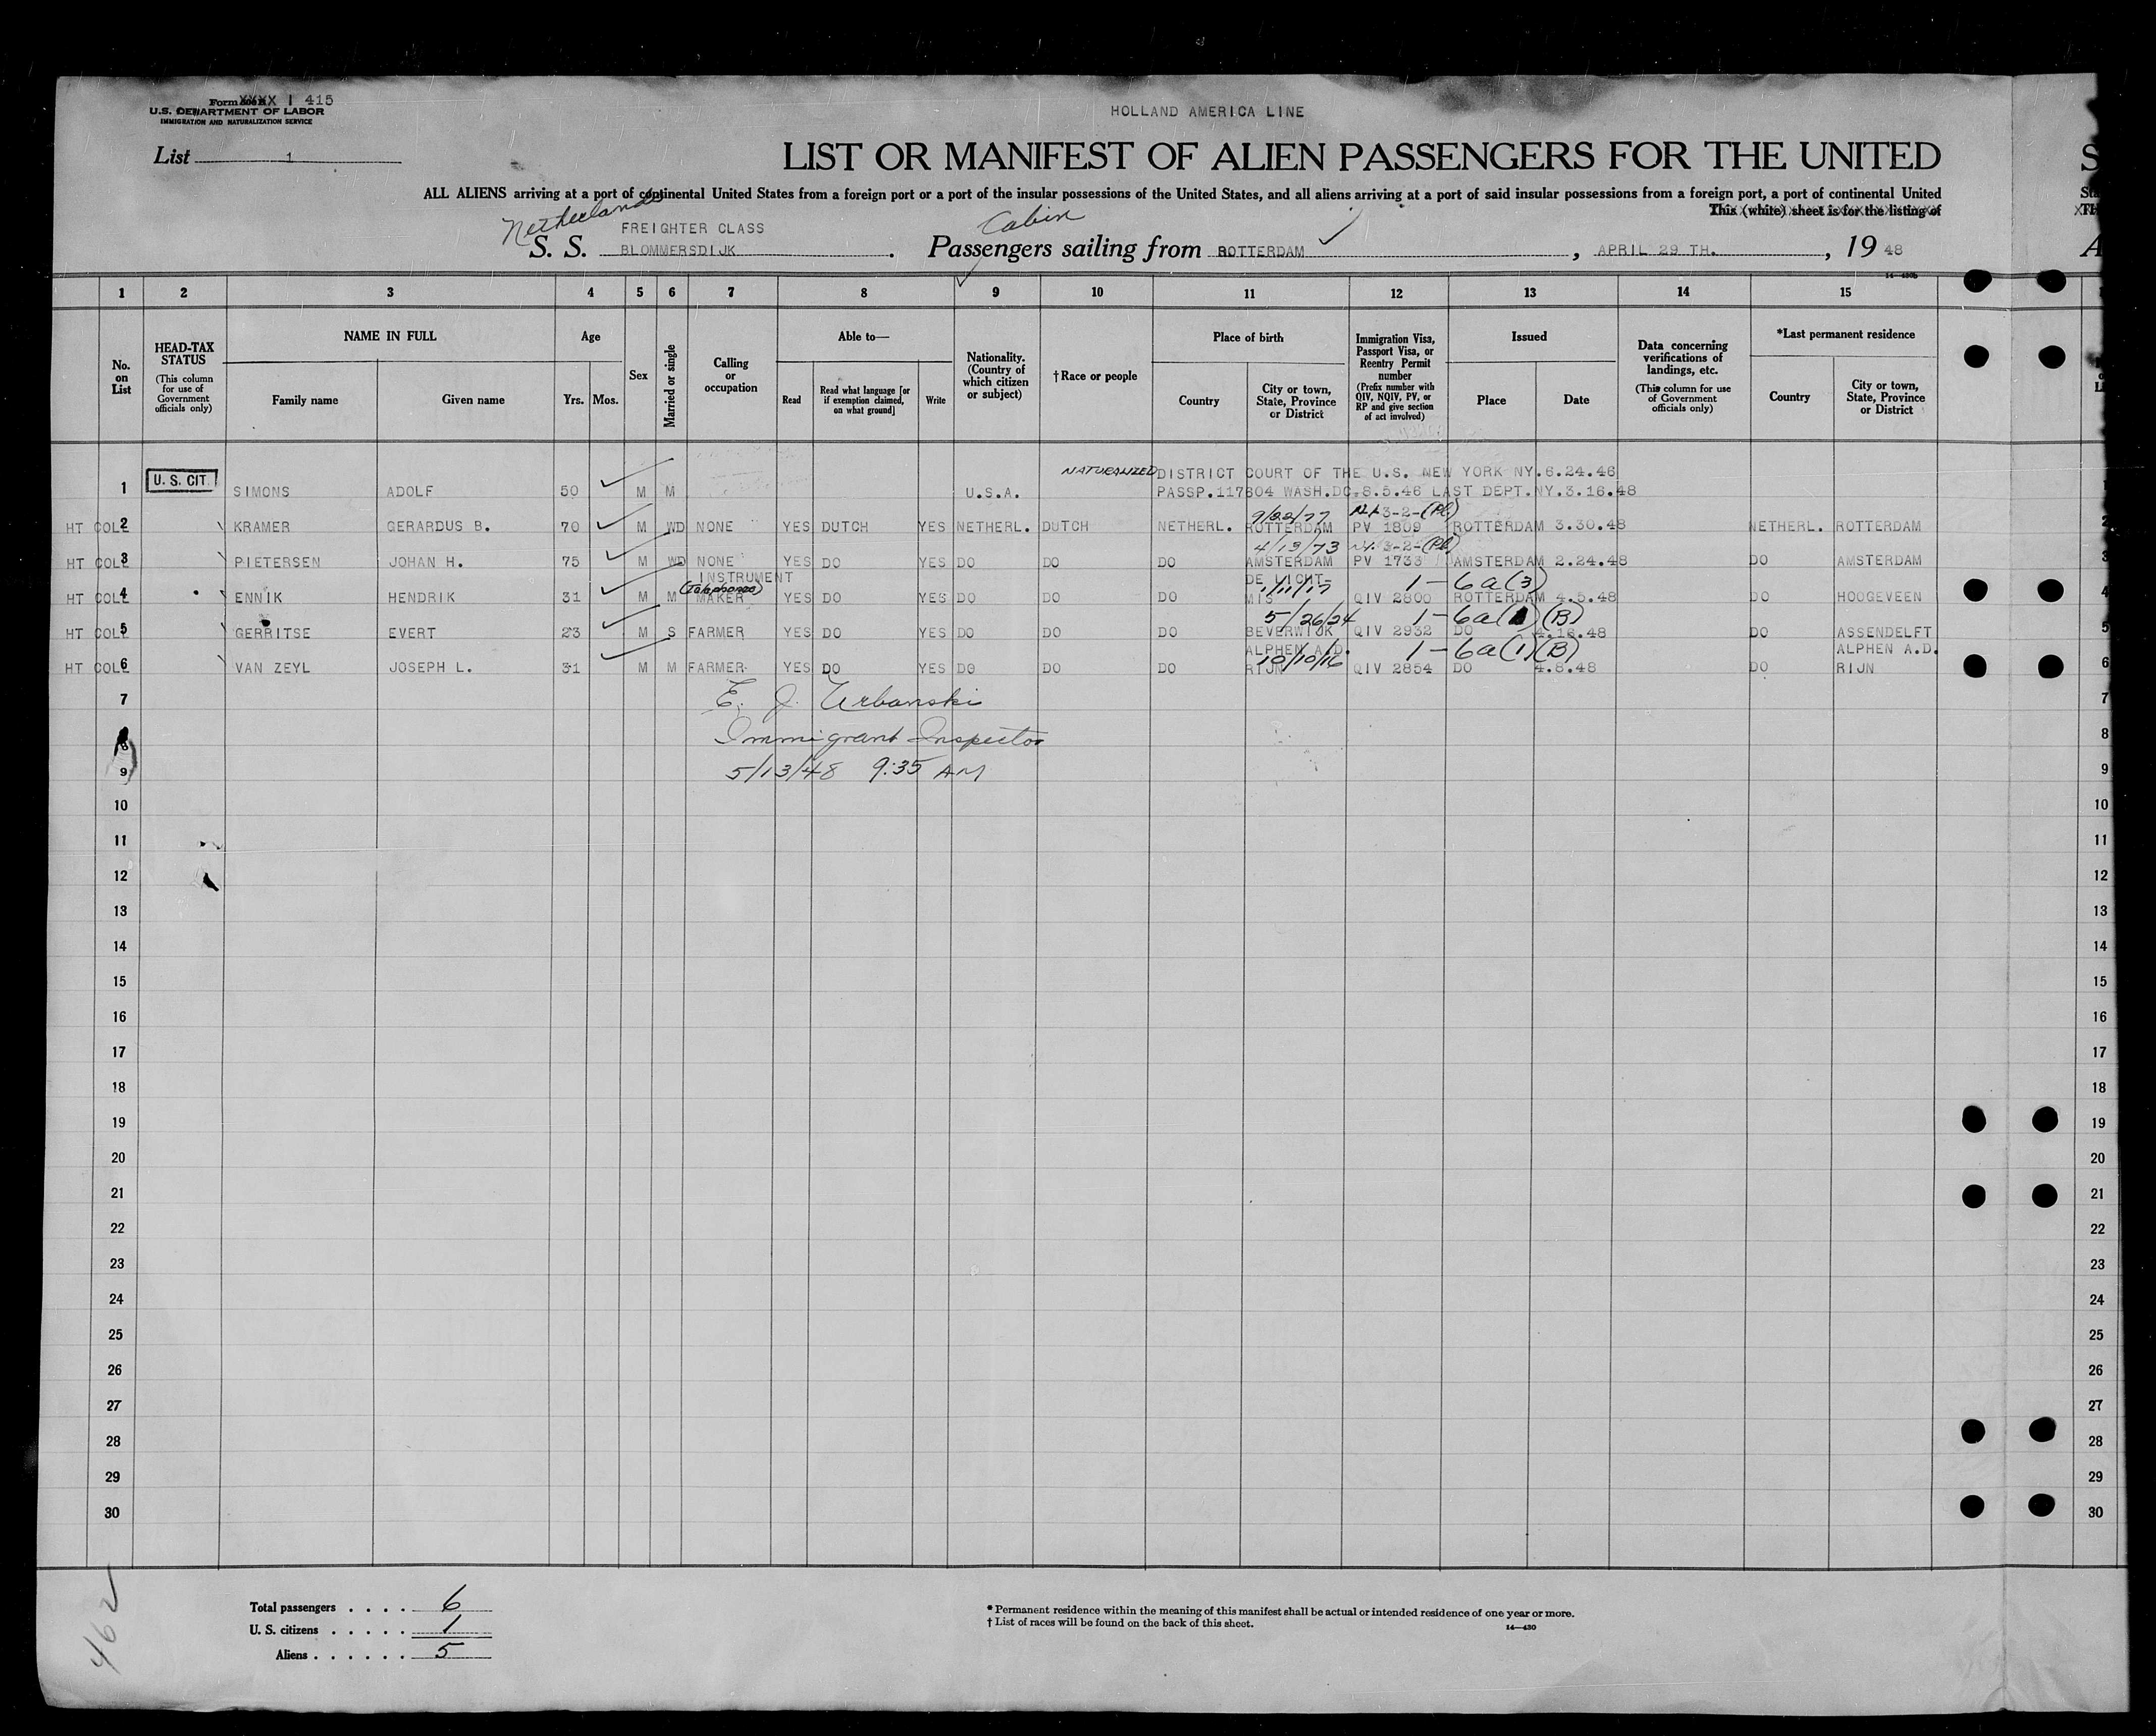 Form XXXX I 415
U.S. DEPARTMENT OF LABOR
IMMIGRATION AND NATURALIZATION SERVICE
HOLLAND AMERICA LINE
List 1
LIST OR MANIFEST OF ALIEN PASSENGERS FOR THE UNITED S
ALL ALIENS arriving at a port of continental United States from a foreign port or a port of the insular possessions of the United States, and all aliens arriving at a port of said insular possessions from a foreign port, a port of continental United
This (white) sheet is for the listing of
Netherlands FREIGHTER CLASS Cabin
S. S. BLOMMERSDIJK . Passengers sailing from ROTTERDAM , APRIL 29 TH. , 19 48 A
1 2 3 4 5 6 7 8 9 10 11 12 13 14 15
No. on List
HEAD-TAX STATUS (This column for use of Government officials only)
NAME IN FULL Family name Given name
Age Yrs. Mos.
Sex
Married or single
Calling or occupation
Able to— Read Read what language [or if exemption claimed, on what ground] Write
Nationality. (Country of which citizen or subject)
† Race or people
Place of birth Country City or town, State, Province or District
Immigration Visa, Passport Visa, or Reentry Permit number (Prefix number with QIV, NQIV, PV, or RP and give section of act involved)
Issued Place Date
Data concerning verifications of landings, etc. (This column for use of Government officials only)
*Last permanent residence Country City or town, State, Province or District
NATURALIZED DISTRICT COURT OF THE U.S. NEW YORK NY.6.24.46
1 U. S. CIT. SIMONS ADOLF 50 M M U.S.A. PASSP.117804 WASH.DC.8.5.46 LAST DEPT.NY.3.16.48
9/22/77 3-2-(Pl)
HT COLL 2 KRAMER GERARDUS B. 70 M WD NONE YES DUTCH YES NETHERL. DUTCH NETHERL. ROTTERDAM PV 1809 ROTTERDAM 3.30.48 NETHERL. ROTTERDAM 2
4/13/73 3-2-(Pl)
HT COLL 3 PIETERSEN JOHAN H. 75 M WD NONE YES DO YES DO DO DO AMSTERDAM PV 1733 AMSTERDAM 2.24.48 DO AMSTERDAM 3
INSTRUMENT DE VICHT- 1/11/17 1-6a(3)
HT COLL 4 ENNIK HENDRIK 31 M M (Telephones) MAKER YES DO YES DO DO DO MIS QIV 2800 ROTTERDAM 4.5.48 DO HOOGEVEEN 4
5/26/24 1-6a(1)(B)
HT COLL 5 GERRITSE EVERT 23 M S FARMER YES DO YES DO DO DO BEVERWIJK QIV 2932 DO 4.16.48 DO ASSENDELFT 5
ALPHEN A.D. 10/10/16 1-6a(1)(B) ALPHEN A.D.
HT COLL 6 VAN ZEYL JOSEPH L. 31 M M FARMER YES DO YES DO DO DO RIJN QIV 2854 DO 4.8.48 DO RIJN 6
7 E. J. Urbanski 7
8 Immigrant Inspector 8
9 5/13/48 9:35 AM 9
10 10
11 11
12 12
13 13
14 14
15 15
16 16
17 17
18 18
19 19
20 20
21 21
22 22
23 23
24 24
25 25
26 26
27 27
28 28
29 29
30 30
462
Total passengers . . . . 6
U. S. citizens . . . . . 1
Aliens . . . . . . 5
* Permanent residence within the meaning of this manifest shall be actual or intended residence of one year or more.
† List of races will be found on the back of this sheet.
14—430